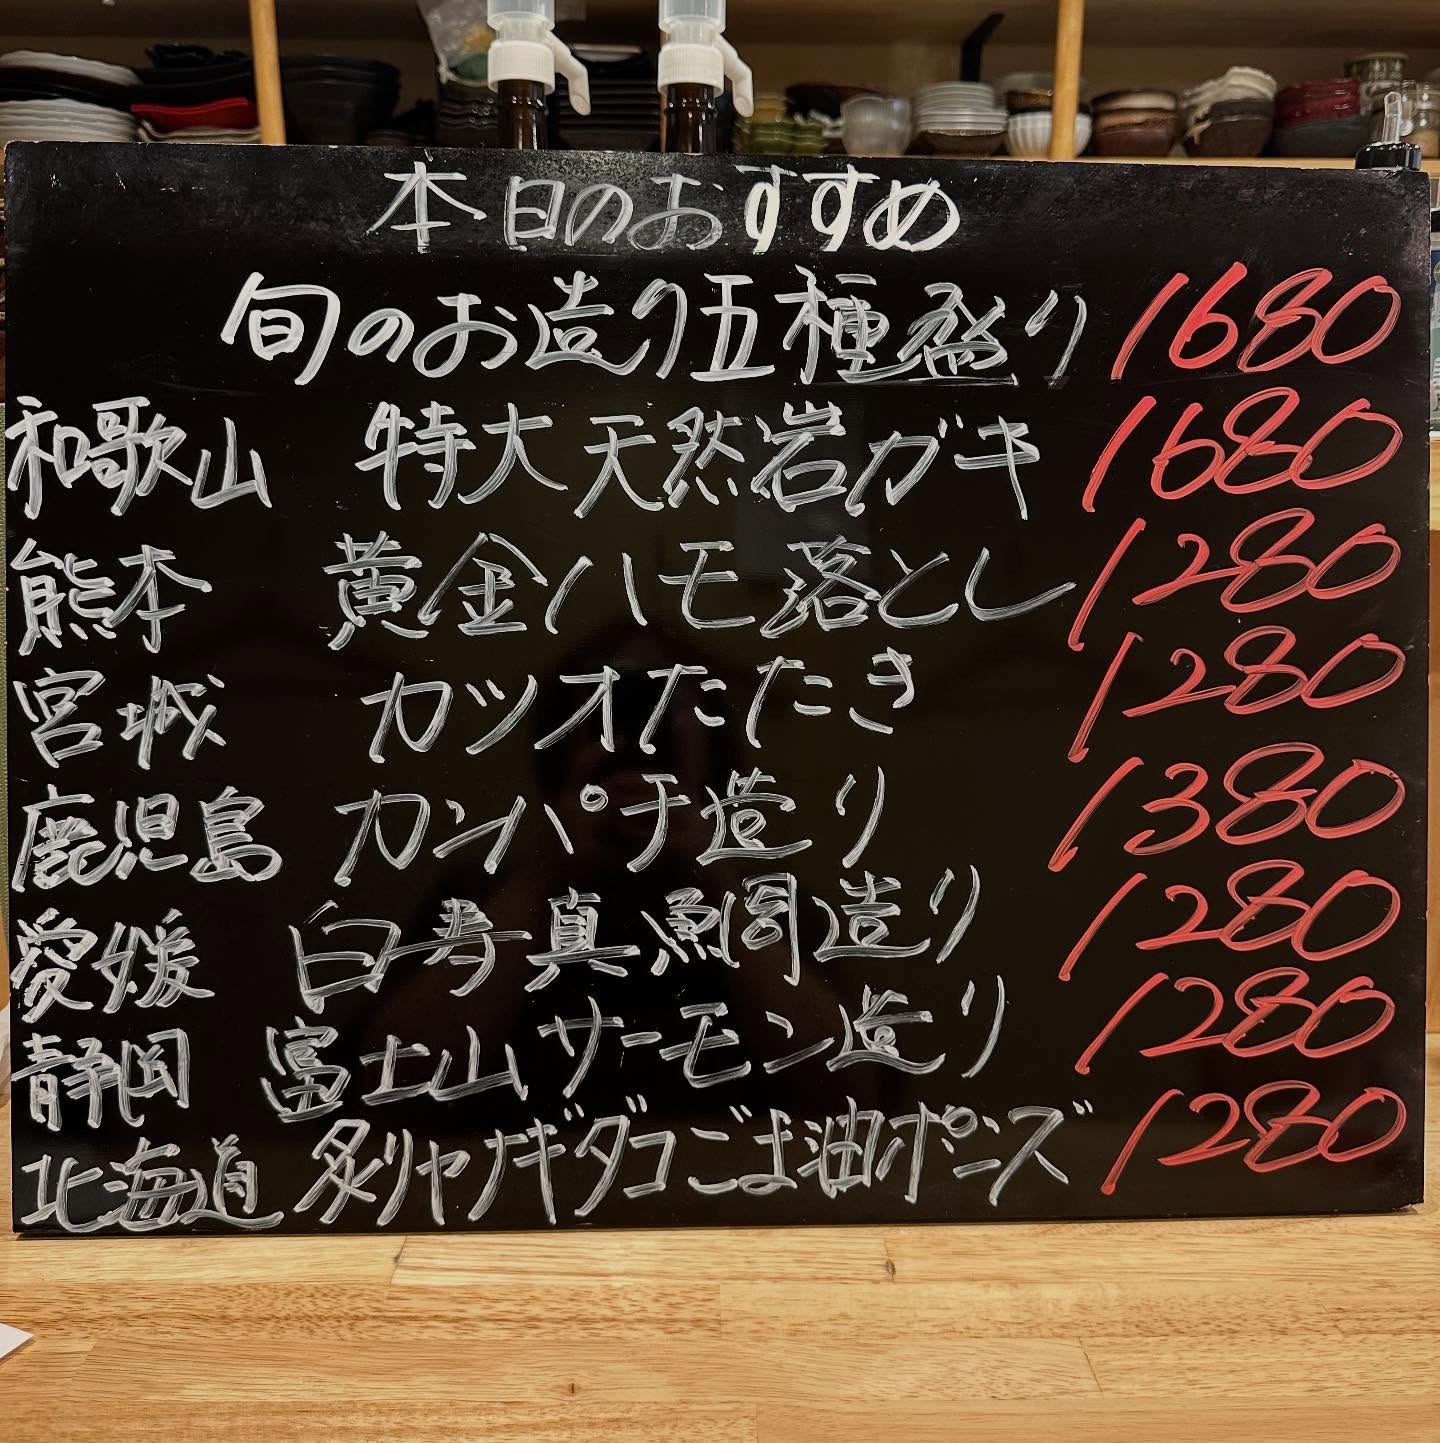 本日のおすすめ
旬のお造り五種盛り 1680
和歌山 特大天然岩ガキ 1680
熊本 黄金ハモ落とし 1280
宮城 カツオたたき 1280
鹿児島 カンパチ造り 1380
愛媛 白寿真鯛造り 1280
静岡 富士山サーモン造り 1280
北海道 炙りヤナギダコごま油ポンズ 1280